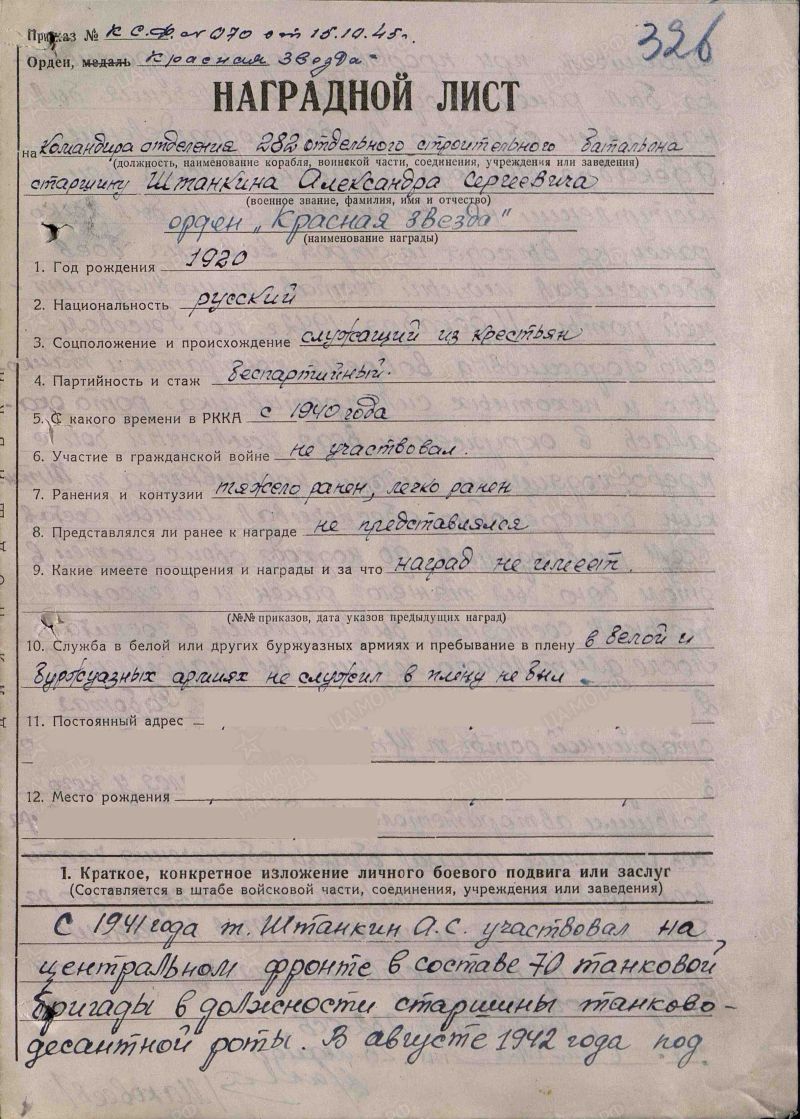 Приказ № КСФ № 070 от 15.10.45г.
326
Орден, медаль „Красная Звезда"
НАГРАДНОЙ ЛИСТ
на Командира отделения 282 отдельного строительного батальона
(должность, наименование корабля, воинской части, соединения, учреждения или заведения)
старшину Штанкина Александра Сергеевича
(военное звание, фамилия, имя и отчество)
орден „Красная звезда"
(наименование награды)
1. Год рождения 1920
2. Национальность русский
3. Соцположение и происхождение служащий из крестьян
4. Партийность и стаж беспартийный.
5. С какого времени в РККА с 1940 года
6. Участие в гражданской войне не участвовал.
7. Ранения и контузии тяжело ранен, легко ранен
8. Представлялся ли ранее к награде не представлялся
9. Какие имеете поощрения и награды и за что наград не имеет.
(№№ приказов, дата указов предыдущих наград)
10. Служба в белой или других буржуазных армиях и пребывание в плену в белой и
буржуазных армиях не служил в плену не был.
11. Постоянный адрес
12. Место рождения
I. Краткое, конкретное изложение личного боевого подвига или заслуг
(Составляется в штабе войсковой части, соединения, учреждения или заведения)
С 1941 года т. Штанкин А.С. участвовал на
центральном фронте в составе 70 танковой
бригады в должности старшины танково-
десантной роты. В августе 1942 года под